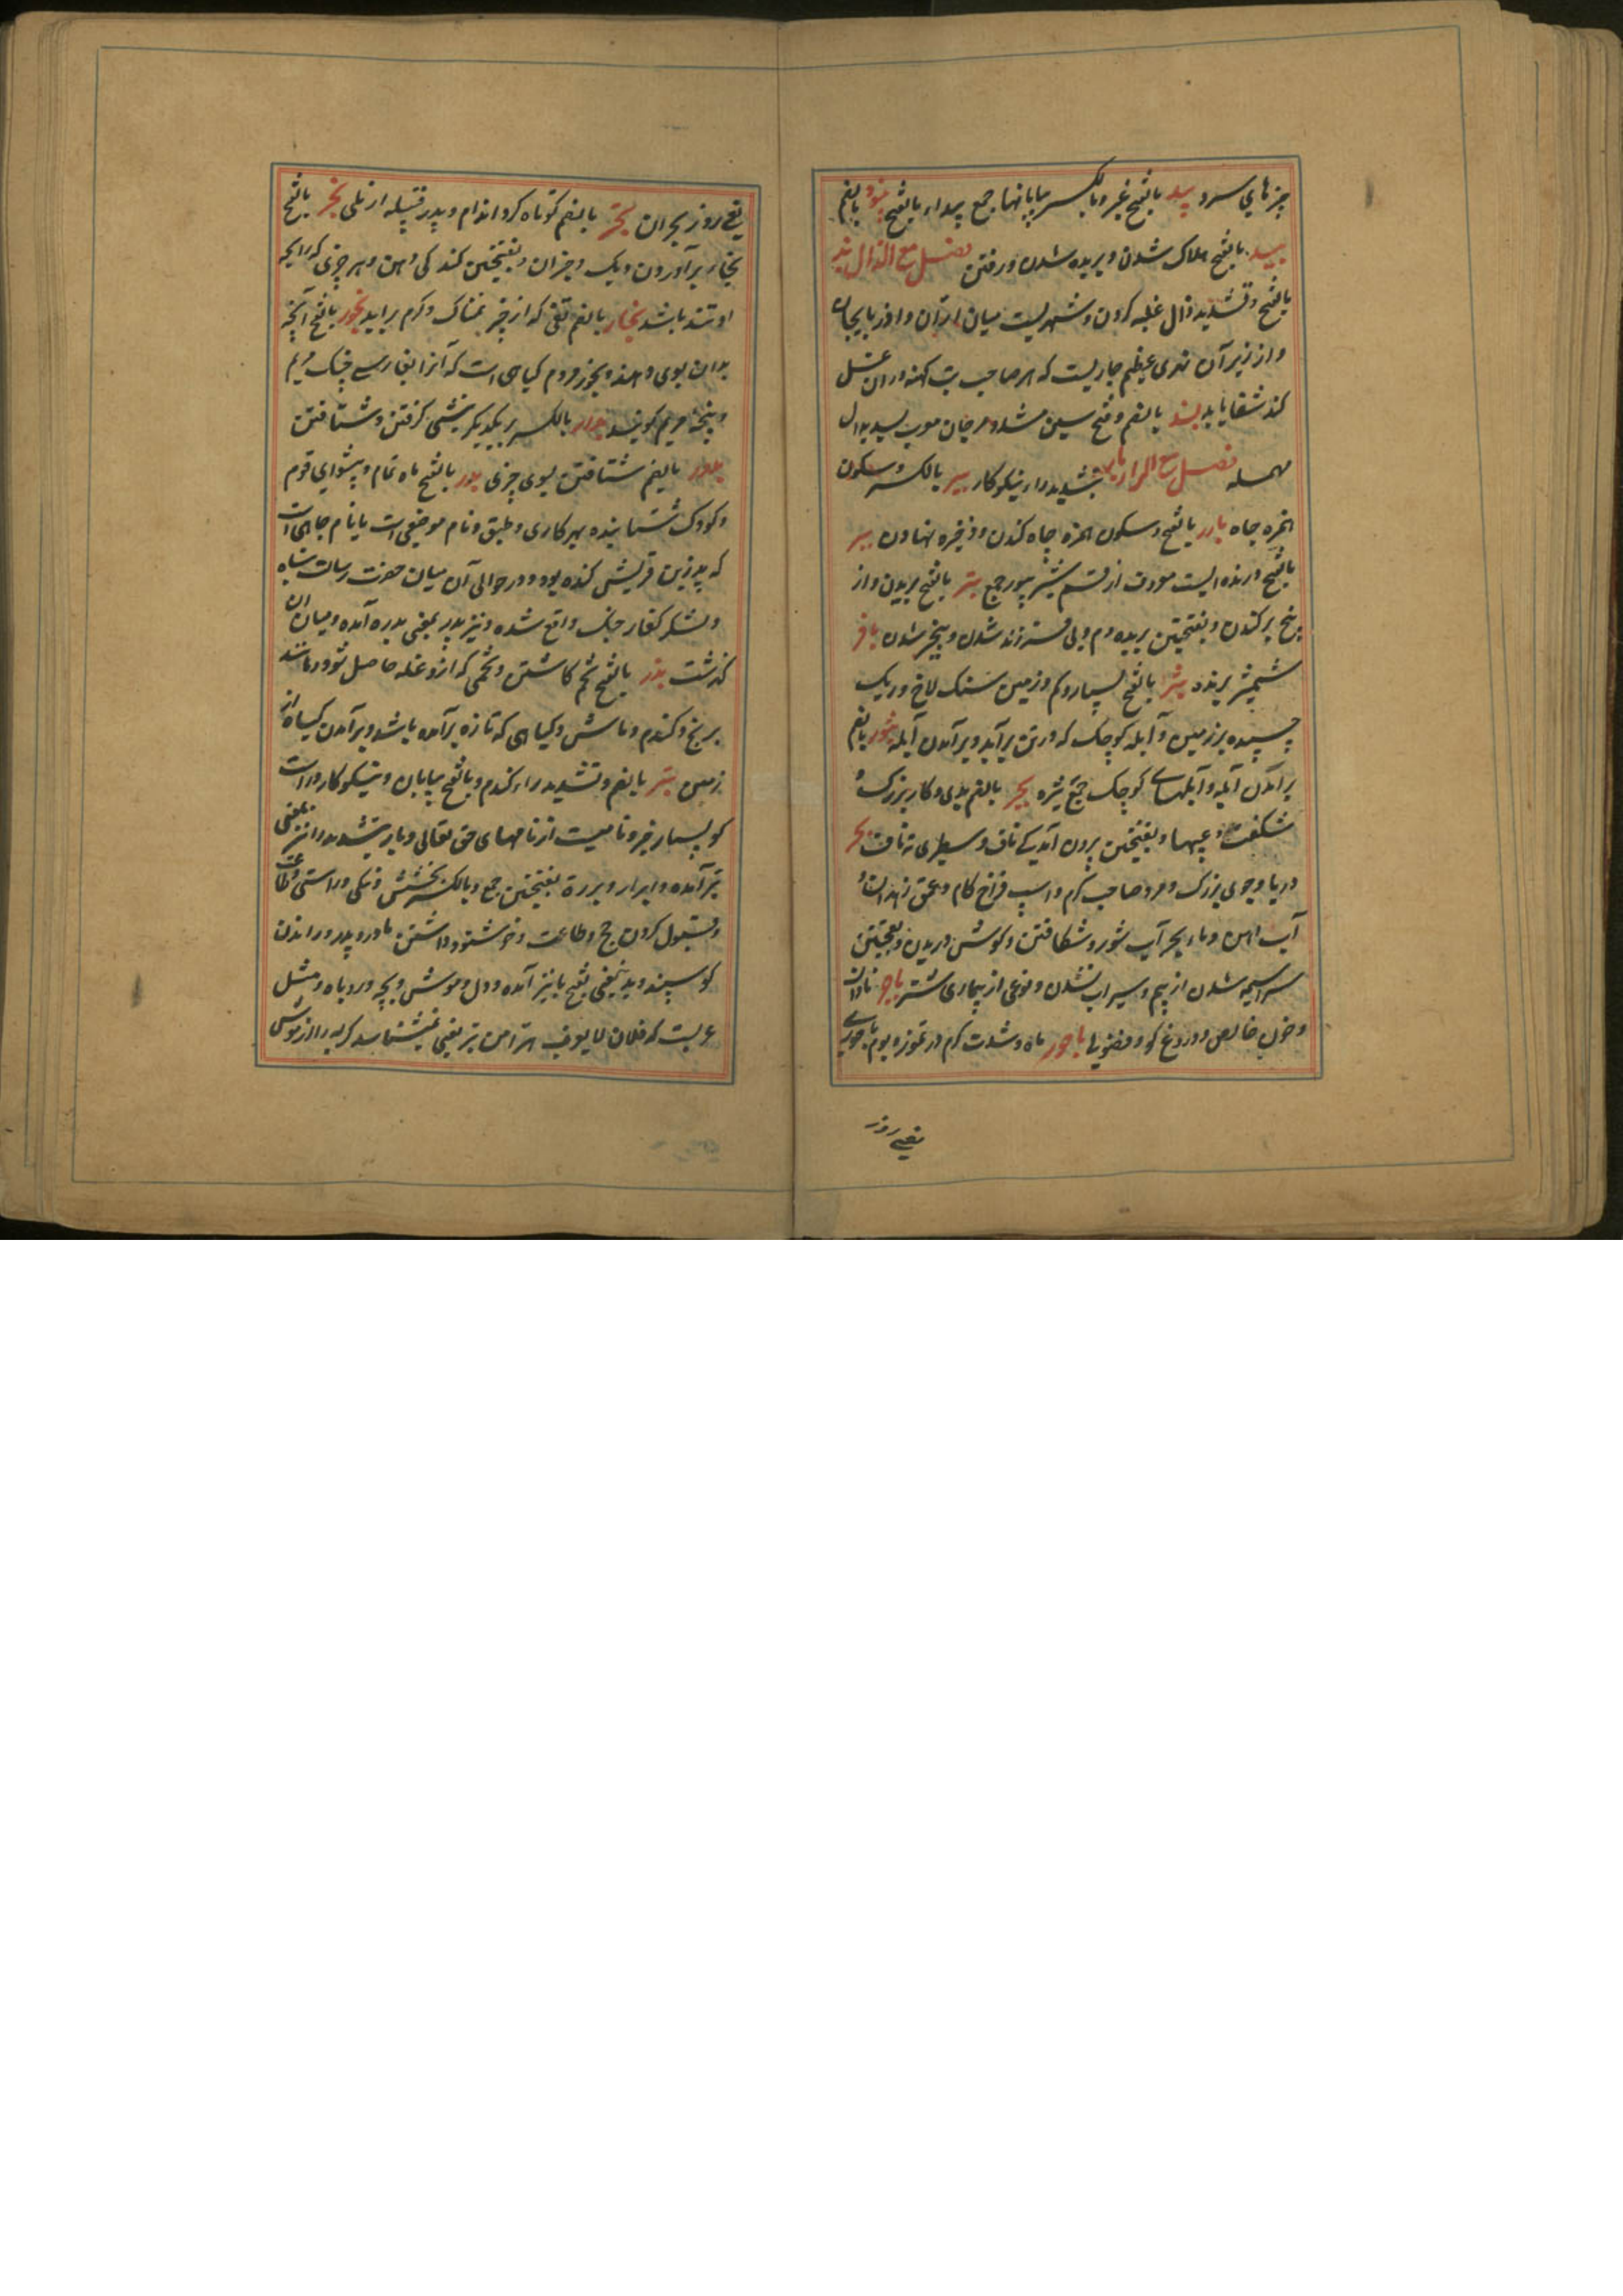 چیزهای سرد بید بالفتح غیر وبالکسر بیابانها جمع بیداء بالفتح بیود بالضم
بید بالفتح هلاک شدن و بریده شدن و رفتن فصل مع الذال بذ
بالفتح وتشدید ذال غلبه کردن و شهریست میان اران و اذربایجان
و از زیر آن ندی عظیم جاریست که هر صاحب تب کهنه دران غسل
کند شفا یابد بسذ بالضم وفتح سین مشدد مرجان معرب بسد بدال
مهمله فصل مع الراء بار بتشدید راء نیکوکار بیر بالکسر وسکون
همزه چاه بار بالفتح وسکون همزه چاه کندن و ذخیره نهادن ببر
بالفتح درنده ایست معروف از قسم شیر ببور جمع بتر بالفتح بریدن و از
بیخ برکندن و بفتحتین بریده دم و بی فرزند شدن و بیخیر شدن باتر
شمشیر برنده بثر بالفتح بسیار و کم و زمین سنگ لاخ و ریک
چسپیده بر زمین و آبله کوچک که در تن برآید و برآمدن آبله بثور بالضم
برآمدن آبله و آبلهای کوچک جمع بثره بجر بالضم بدی و کار بزرگ و
شکفت و عیبها و بفتحتین برون آمدگی ناف و سطبری ته ناف بحر
دریا و جوی بزرک و مرد صاحب کرم و اسپ فراخ کام و عمق زهدان و
آب آهن و ماء بحر آب شور و شکافتن و کوش دریدن و بفتحتین
سراسیمه شدن از بیم و سیراب نشدن و نوعی از بیماری شتر باحر نادان
و خون خالص و دروغ کو و فضولی باحور ماه و شدت کرم در تموز و یوم باحوری
یعنی روز
یعنی روز بحران بحتر بالضم کوتاه کرد اندام و پدر قبیله از طی بخر بالفتح
بخار برآوردن دیک و جز آن و بفتحتین کند کی دهن و هر چیزی که رایحه
او تند باشد بخار بالضم تفی که از چیز نمناک و کرم براید بخور بالفتح آنچه
بدان بوی دهند و بخور مریم کیاهی است که آنرا بفارسی چنک مریم
و پنجه مریم کویند بدار بالکسر بر یکدیکر پیشی کرفتن و شتافتن
بدور بالضم شتافتن بسوی چیزی بدر بالفتح ماه تمام و پیشوای قوم
و کودک شتابنده بهر کاری و طبق و نام موضعی است یا نام چاهی است
که بدر بن قریش کنده بود و در حوالی آن میان حضرت رسالت پناه
و لشکر کفار جنک واقع شده و نیز بدر بمعنی بدره آمده و میان آن
کذشت بذر بالفتح تخم کاشتن و تخمی که ازو غله حاصل شود مانند
برنج و کندم و ماش و کیاهی که تازه برآمده باشد و برآمدن کیاه از
زمین بر بالضم و تشدید راء کندم و بالفتح بیابان و نیکوکار و راست
کو بسیار خیر و نامیست از نامهای حق تعالی و بار بتشدید را نیز بمعنی
بر آمده و ابرار و بررة بفتحتین جمع و بالکسر بخشش و نیکی و راستی و طاعت
و قبول کردن حج و طاعت و خوشنود داشتن مادر و پدر و راندن
کوسپند و بدینمعنی بفتح با نیز آمده و دل و موش و بچه روباه و مثل
عربست که فلان لا یعرف هرا من بر یعنی نمیشناسد کربه را از موش